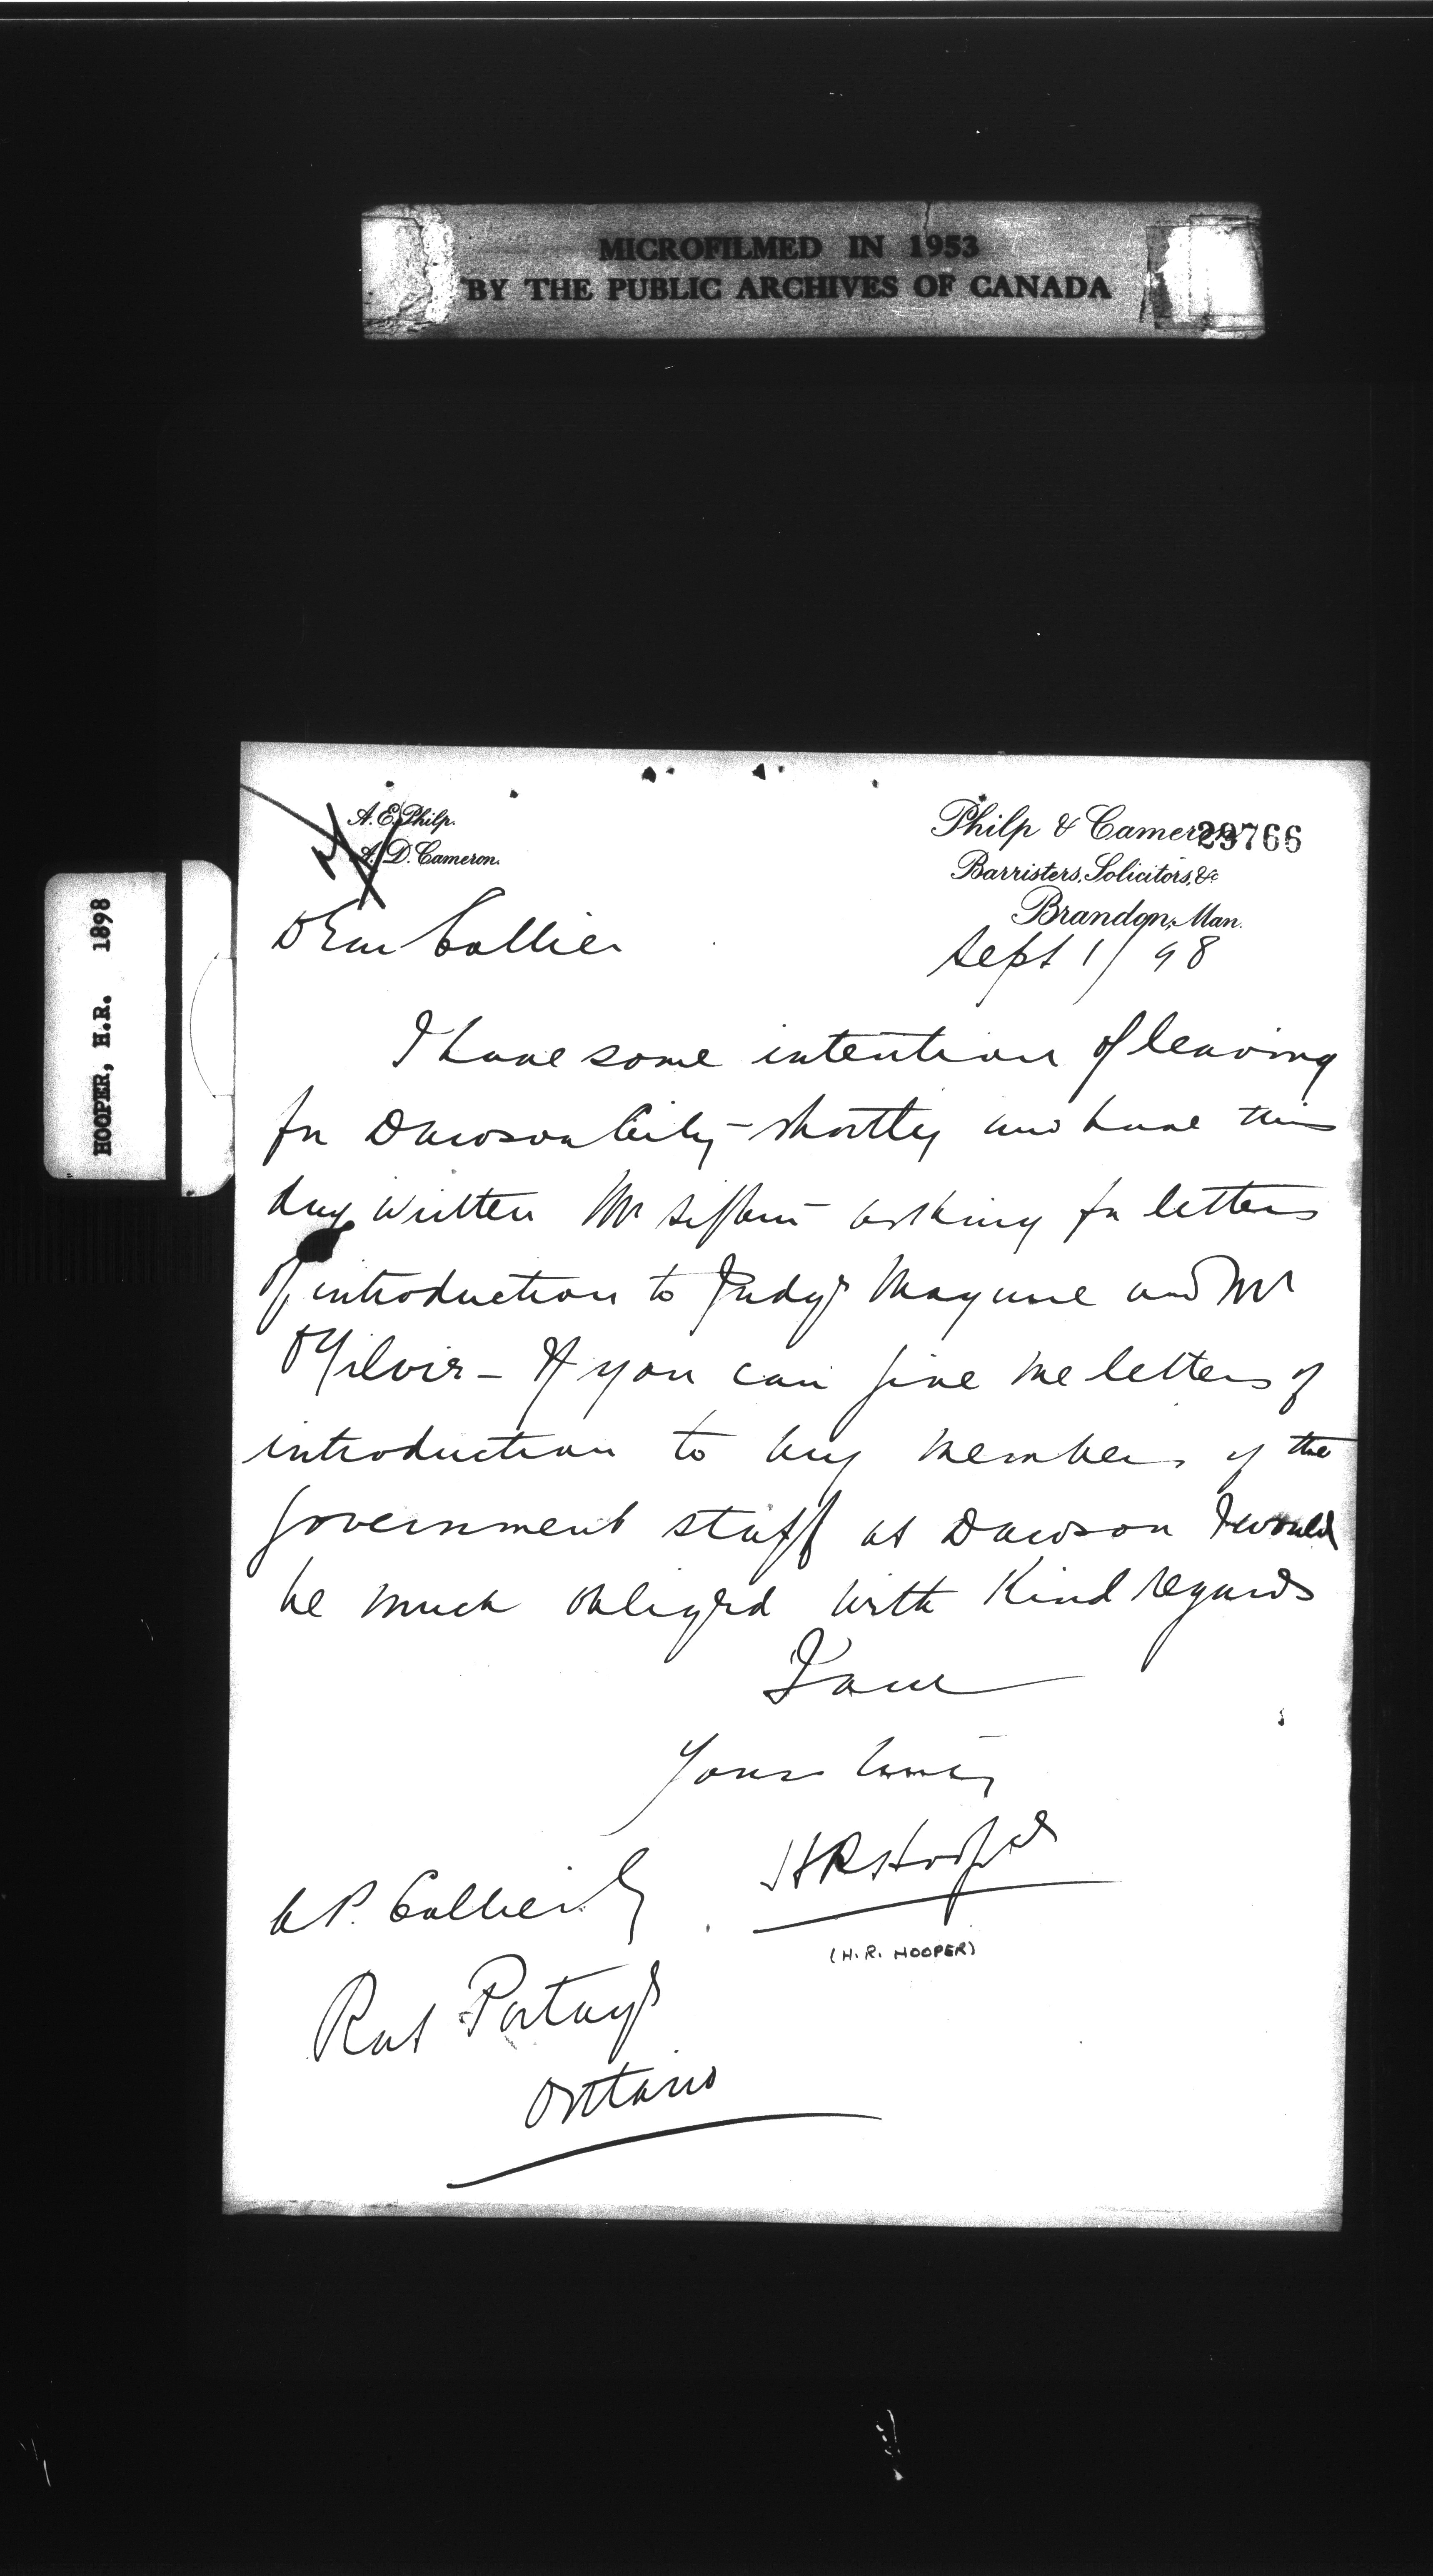 MICROFILMED IN 1953
BY THE PUBLIC ARCHIVES OF CANADA
HOOPER, H.R. 1898
A. E. Philp.
A. D. Cameron.
Philp & Cameron
29766
Barristers, Solicitors, &c
Brandon, Man.
Sept 1/98
Dear Collier
I have some intention of leaving
for Dawson City - shortly and have this
day written Mr Sifton asking for letters
of introduction to Judge Mayune and Mr
Ogilvie - If you can give me letters of
introduction to any members of the
government staff at Dawson I would
be much obliged with Kind regards
I am
Yours truly
HR Hooper
(H.R. HOOPER)
A P. Collier
Rat Portage
Ontario